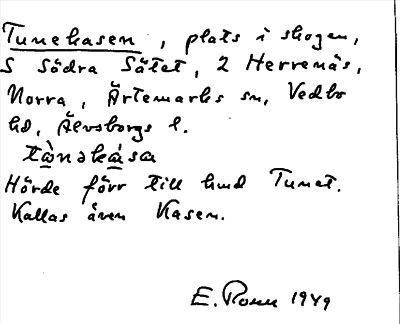 Tunekasen, plats i skogen,
S Södra Sätet, 2 Herrenäs,
Norra, Ärtemarks sn, Vedbo
hd, Älvsborgs l.
Hörde förr till hmd Tunet.
Kallas även Kasen.
E. 1949